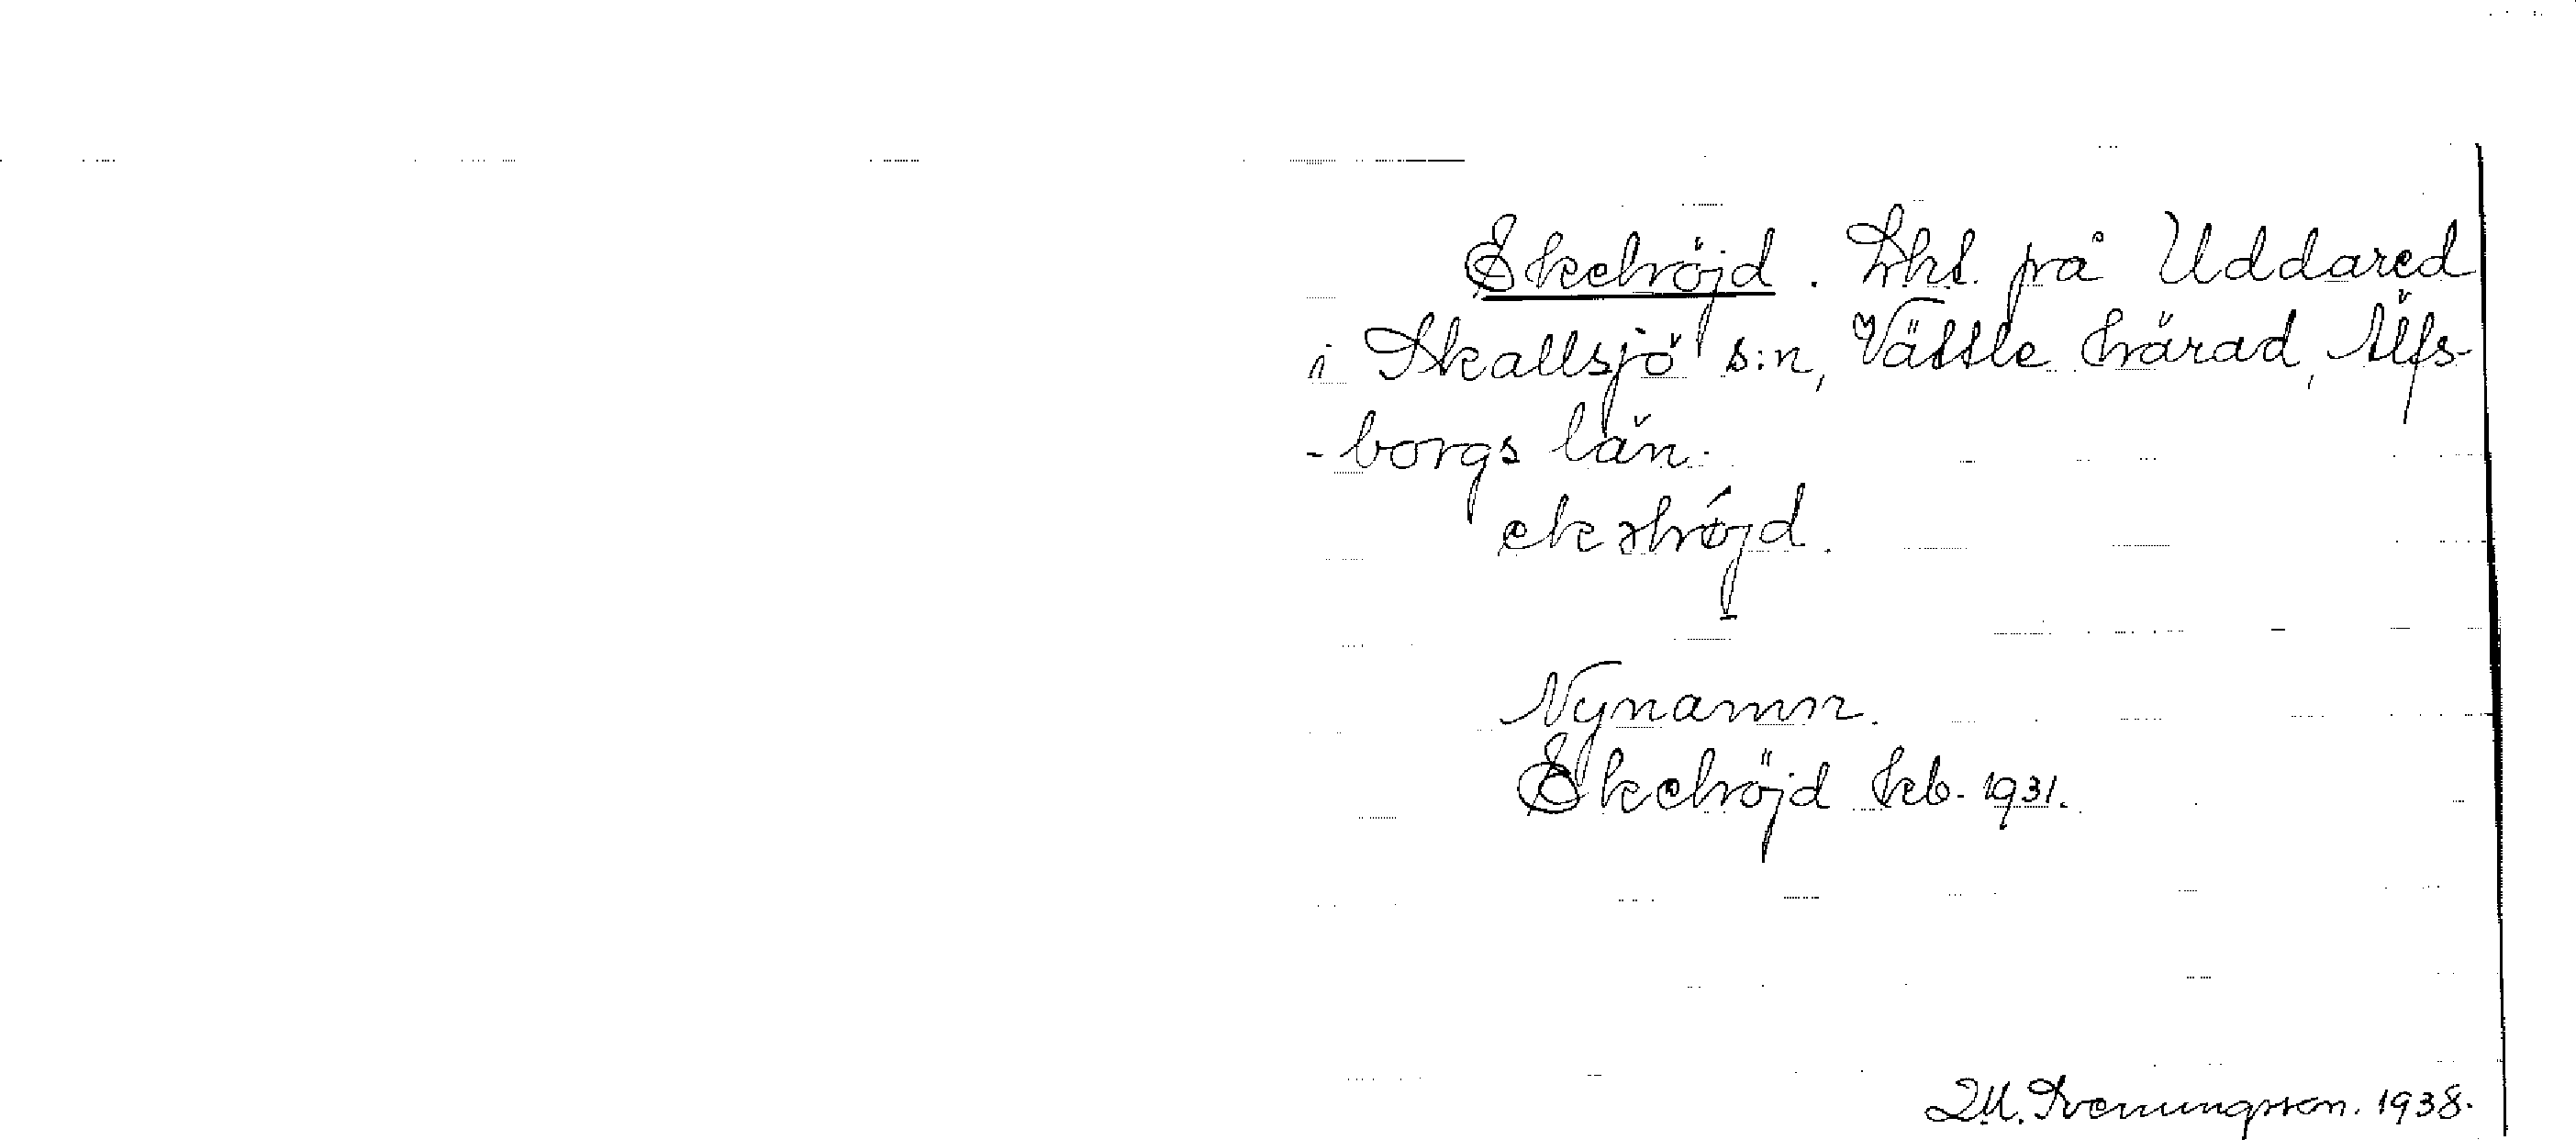 Ekehöjd. Lht. på Uddared
i Skallsjö s:n, Vättle härad, Älfs-
-borgs län.
ekəhöjd.
Nynamn.
Ekehöjd kb. 1931.
Svenungsson. 1938.